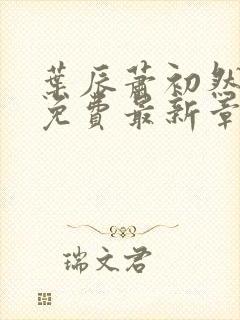 葉辰蕭初然
免費最新章
瑞文君